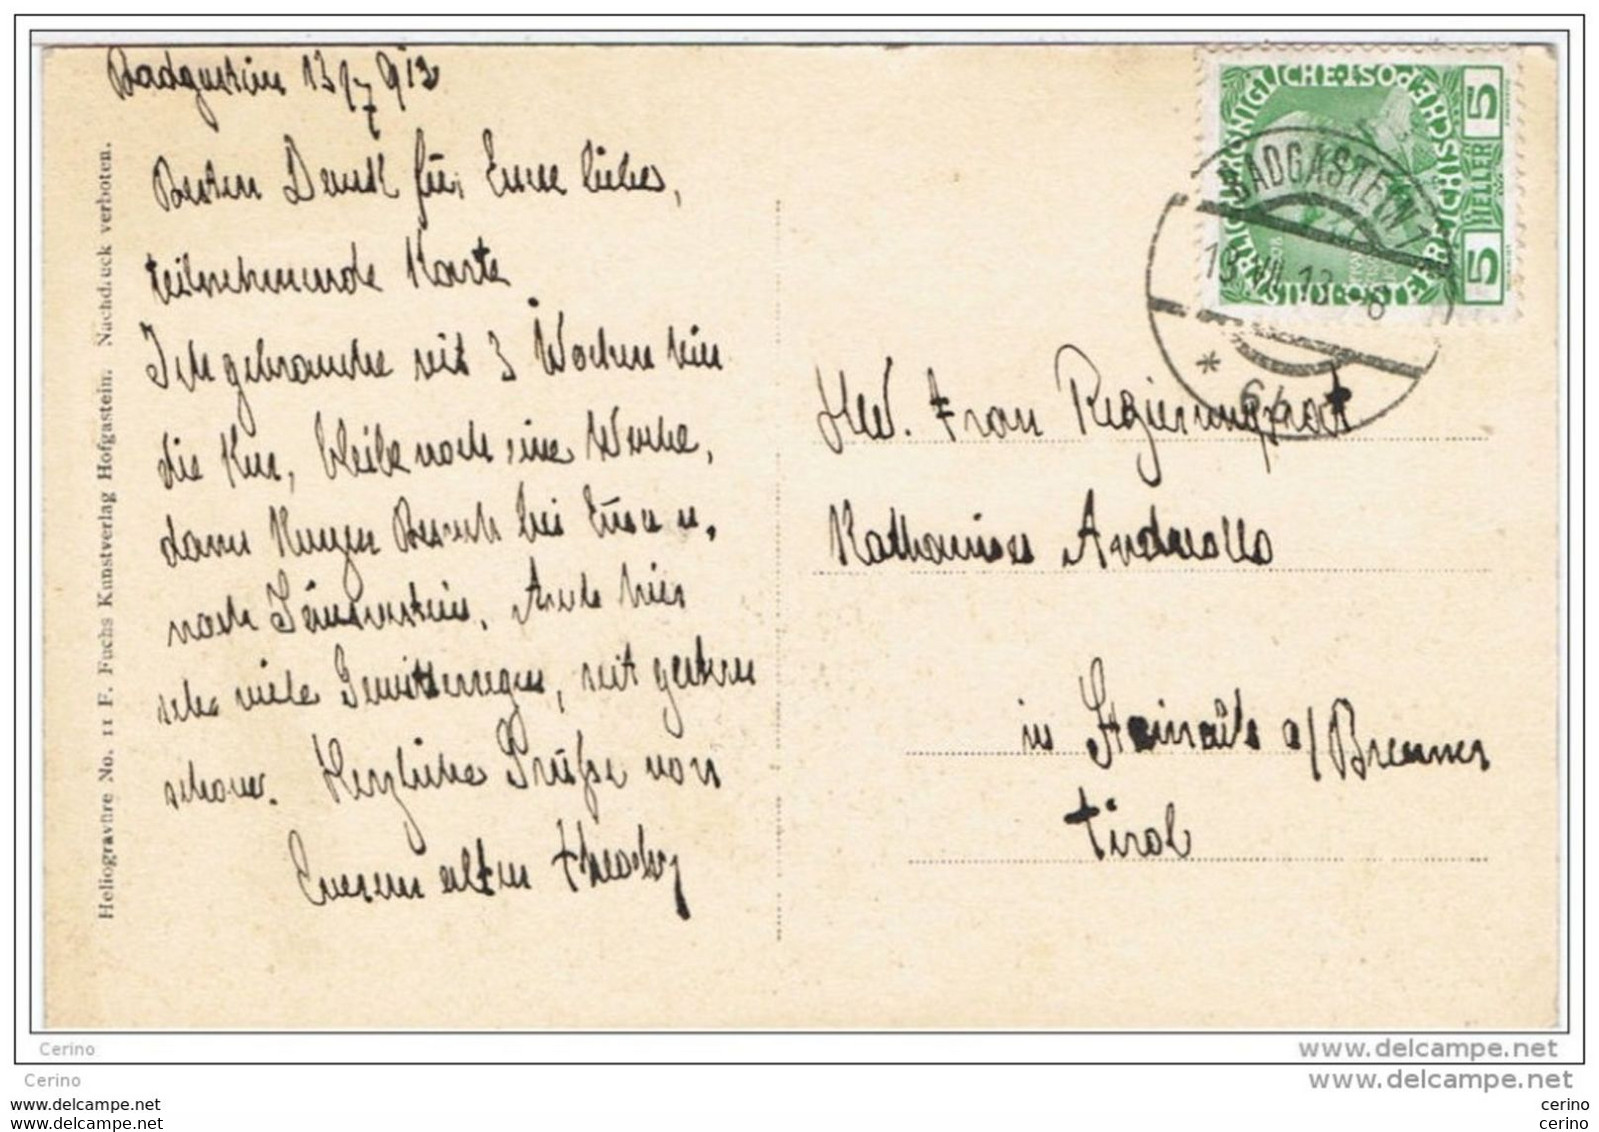 Badgastein 13/7 913
Besten Dank für Eure liebe,
teilnehmende Karte
Ich gebrauche seit 3 Wochen hier
die Kur, bleibe noch eine Woche,
dann kurzen Besuch bei Euse u.
nach . Auch hier
sehr viele Gewitterregen, seit gestern
schöner. Herzliche Grüße von
Eurem alten
Heliogravüre No. 11 F. Fuchs Kunstverlag Hofgastein. Nachdruck verboten.
KAISERLICHE KÖNIGLICHE ÖSTERREICHISCHE POST
5 HELLER 5
BADGASTEIN 1
13.VII.13 - 8
* 6b *
Frau Regierungsrat
Katharina Andreolla
in Steinach a/Brenner
Tirol
Cerino
www.delcampe.net
Cerino
www.delcampe.net
www.delcampe.net
cerino
www.delcampe.net
cerino